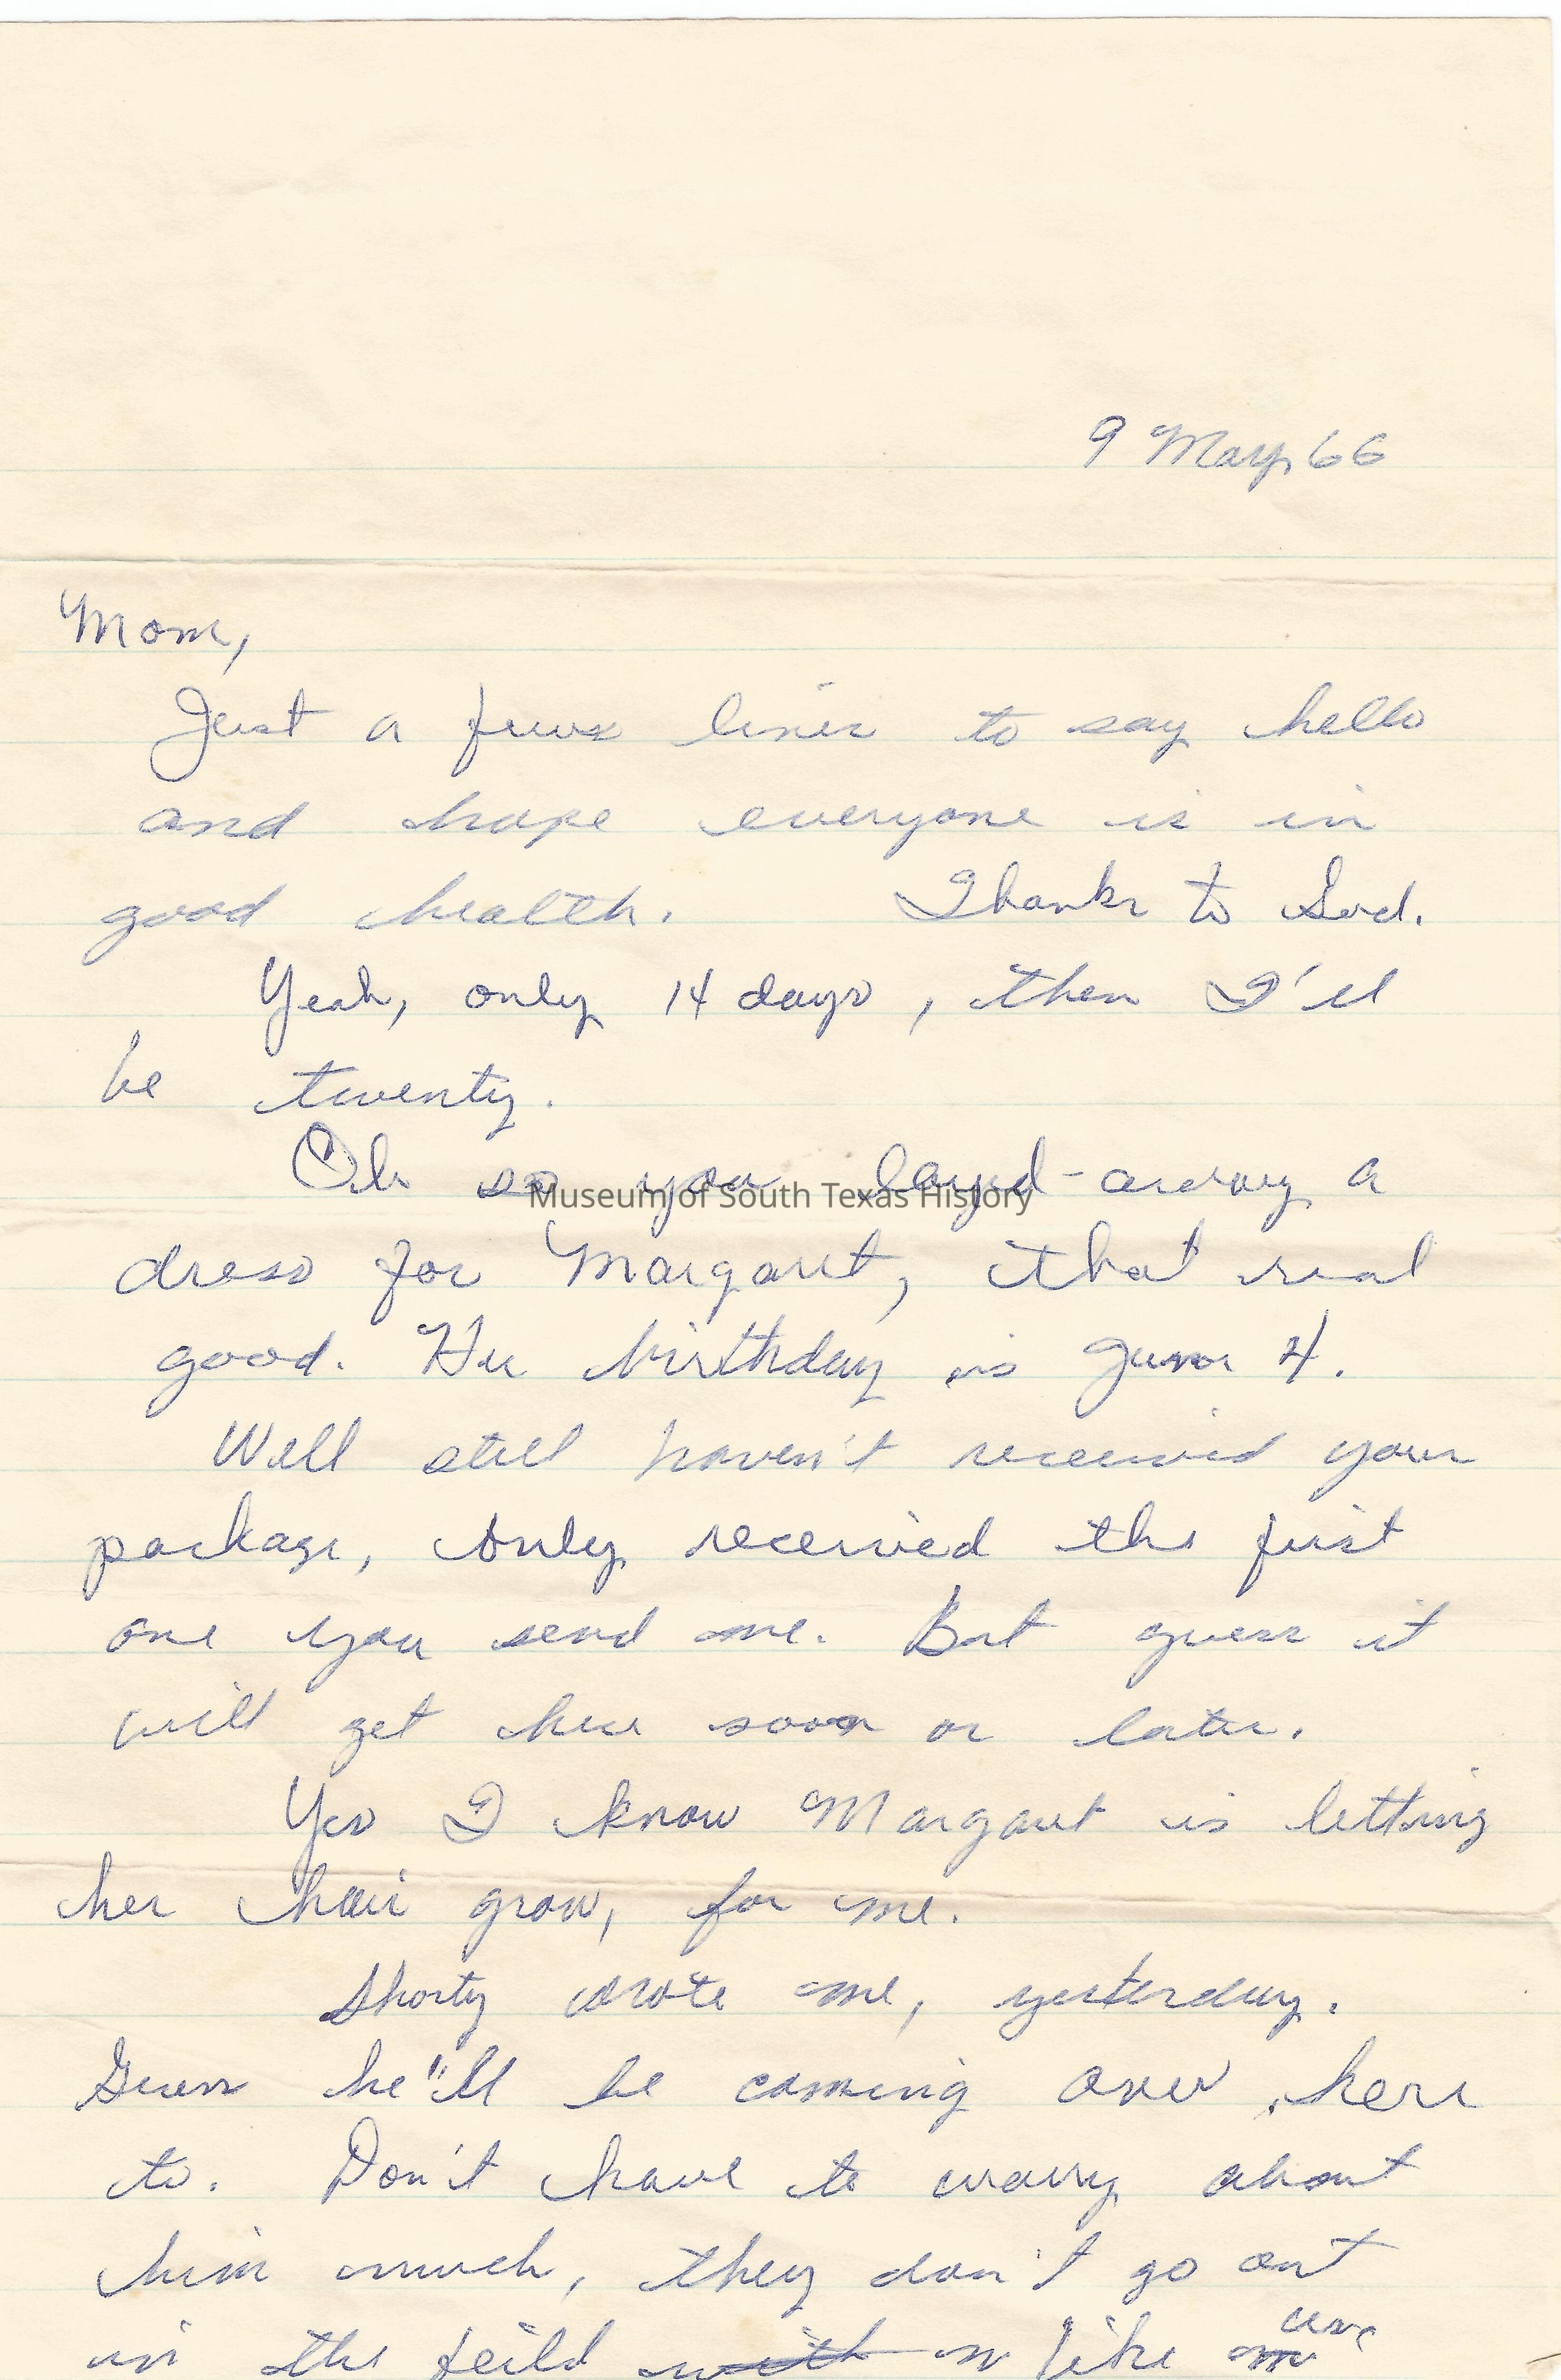 9 May, 66
Mom,
Just a fews lines to say hello
and hope everyone is in
good health. Thanks to God.
Yeah, only 14 days, then I'll
be twenty.
Oh so you layed-away a
Museum of South Texas History
dress for Margaret, that real
good. Her birthday is June 4.
Well still haven't received your
package, only received the first
one you send me. But guess it
will get here soon or later.
Yes I know Margaret is letting
her hair grow, for me.
Shorty wrote me, yesterday.
Guess he"ll be coming over here
to. Don't have to worry about
him much, they don't go out
in the feild with like